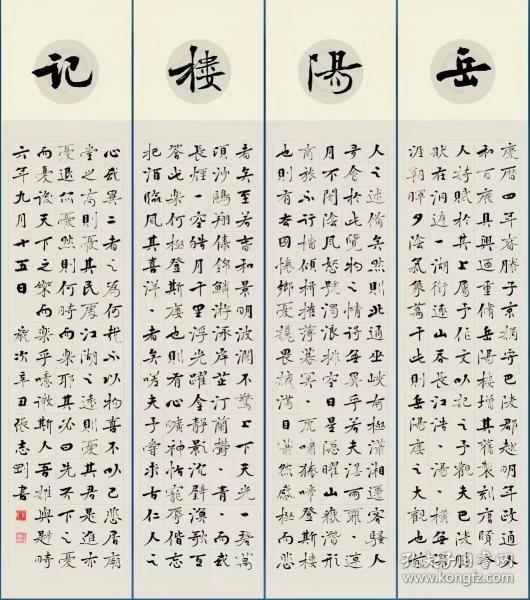 岳
慶曆四年春滕子京謫守巴陵郡越明年政通人
和百廢具興乃重修岳陽樓增其舊制刻唐賢今
人詩賦於其上屬予作文以記之予觀夫巴陵勝
狀在洞庭一湖銜遠山吞長江浩浩湯湯橫無際
涯朝暉夕陰氣象萬千此則岳陽樓之大觀也前
陽
人之述備矣然則北通巫峽南極瀟湘遷客騷人
多會於此覽物之情得無異乎若夫霪雨霏霏連
月不開陰風怒號濁浪排空日星隱曜山嶽潛形
商旅不行檣傾楫摧薄暮冥冥虎嘯猿啼登斯樓
也則有去國懷鄉憂讒畏譏滿目蕭然感極而悲
樓
者矣至若春和景明波瀾不驚上下天光一碧萬
頃沙鷗翔集錦鱗游泳岸芷汀蘭鬱鬱青青而或
長煙一空皓月千里浮光躍金靜影沉璧漁歌互
答此樂何極登斯樓也則有心曠神怡寵辱偕忘
把酒臨風其喜洋洋者矣嗟夫予嘗求古仁人之
記
心或異二者之為何哉不以物喜不以己悲居廟
堂之高則憂其民處江湖之遠則憂其君是進亦
憂退亦憂然則何時而樂耶其必曰先天下之憂
而憂後天下之樂而樂乎噫微斯人吾誰與歸時
六年九月十五日 歲次辛丑張志剛書
孔夫子旧书网
www.kongfz.com